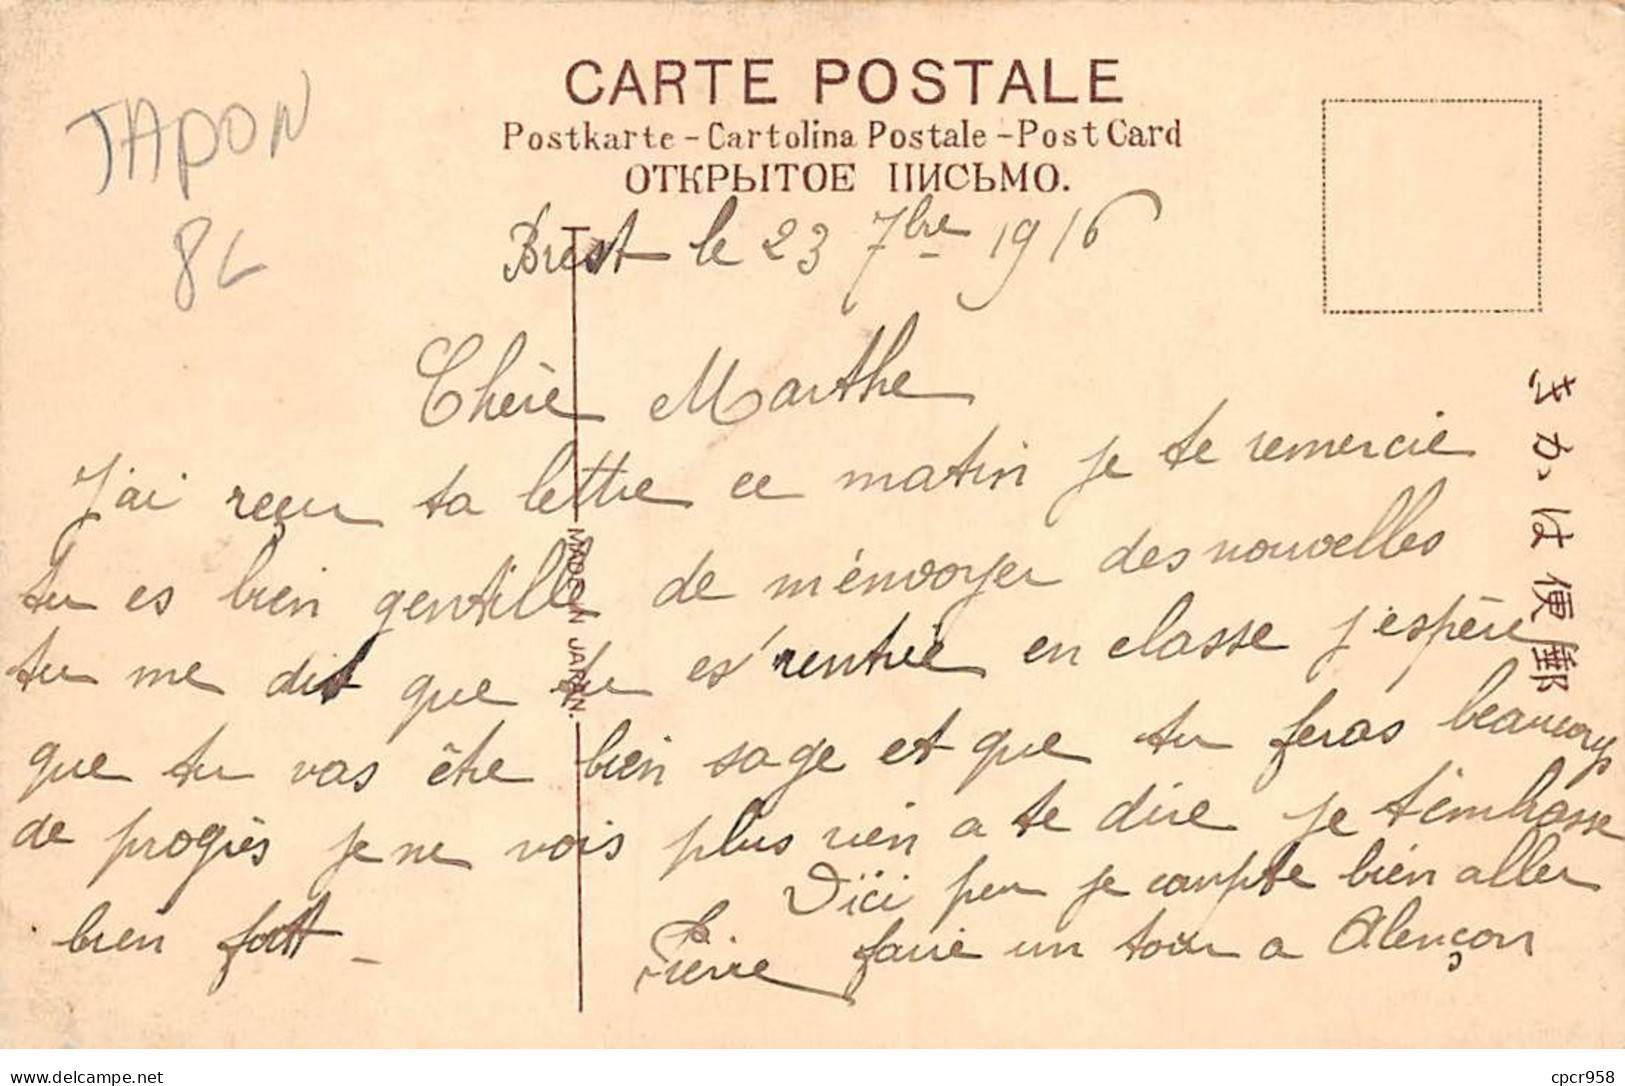 JAPON
8L
CARTE POSTALE
Postkarte - Cartolina Postale - Post Card
ОТКРЫТОЕ ПИСЬМО.
Brest le 23 7bre 1916
Chère Marthe
J'ai reçu ta lettre ce matin je te remercie
tu es bien gentille de m'envoyer des nouvelles
tu me dit que tu es rentrée en classe j'espère
que tu vas être bien sage et que tu feras beaucoup
de progrès je ne vois plus rien a te dire je t'embrasse
bien fort -
D'ici peu je compte bien aller
faire un tour a Alençon
Pierre
MADE IN JAPAN.
きかは便郵
delcampe.net
cpcr958